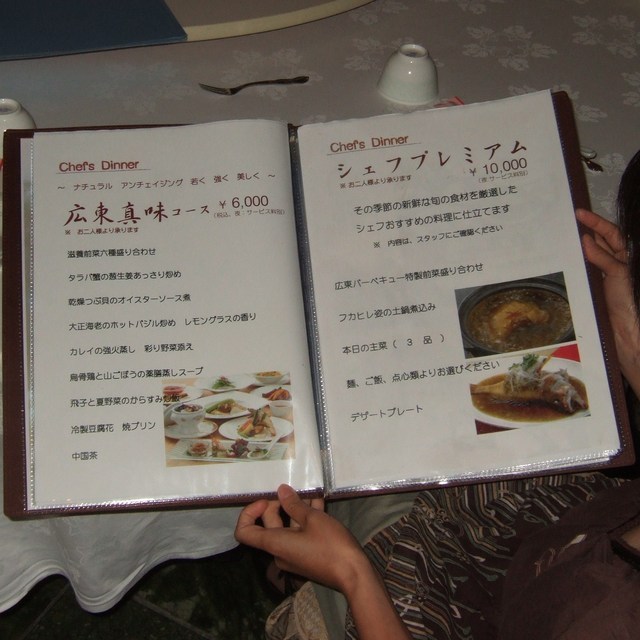 Chef's Dinner
～ ナチュラル アンチェイジング 若く 強く 美しく ～
広東真味コース ￥6,000
※ お二人様より承ります
滋養前菜六種盛り合わせ
タラバ蟹の葱生姜あっさり炒め
乾燥つぶ貝のオイスターソース煮
大正海老のホットバジル炒め レモングラスの香り
カレイの強火蒸し 彩り野菜添え
烏骨鶏と山ごぼうの薬膳蒸しスープ
飛子と夏野菜のからすみ炒飯
冷製豆腐花 焼プリン
中国茶
Chef's Dinner
シェフプレミアム
※ お二人様より承ります
￥10,000
(席・サービス料別)
その季節の新鮮な旬の食材を厳選した
シェフおすすめの料理に仕立てます
※ 内容は、スタッフにご確認ください
広東バーベキュー特製前菜盛り合わせ
フカヒレ姿の土鍋煮込み
本日の主菜（ 3 品 ）
麺、ご飯、点心類よりお選びください
デザートプレート